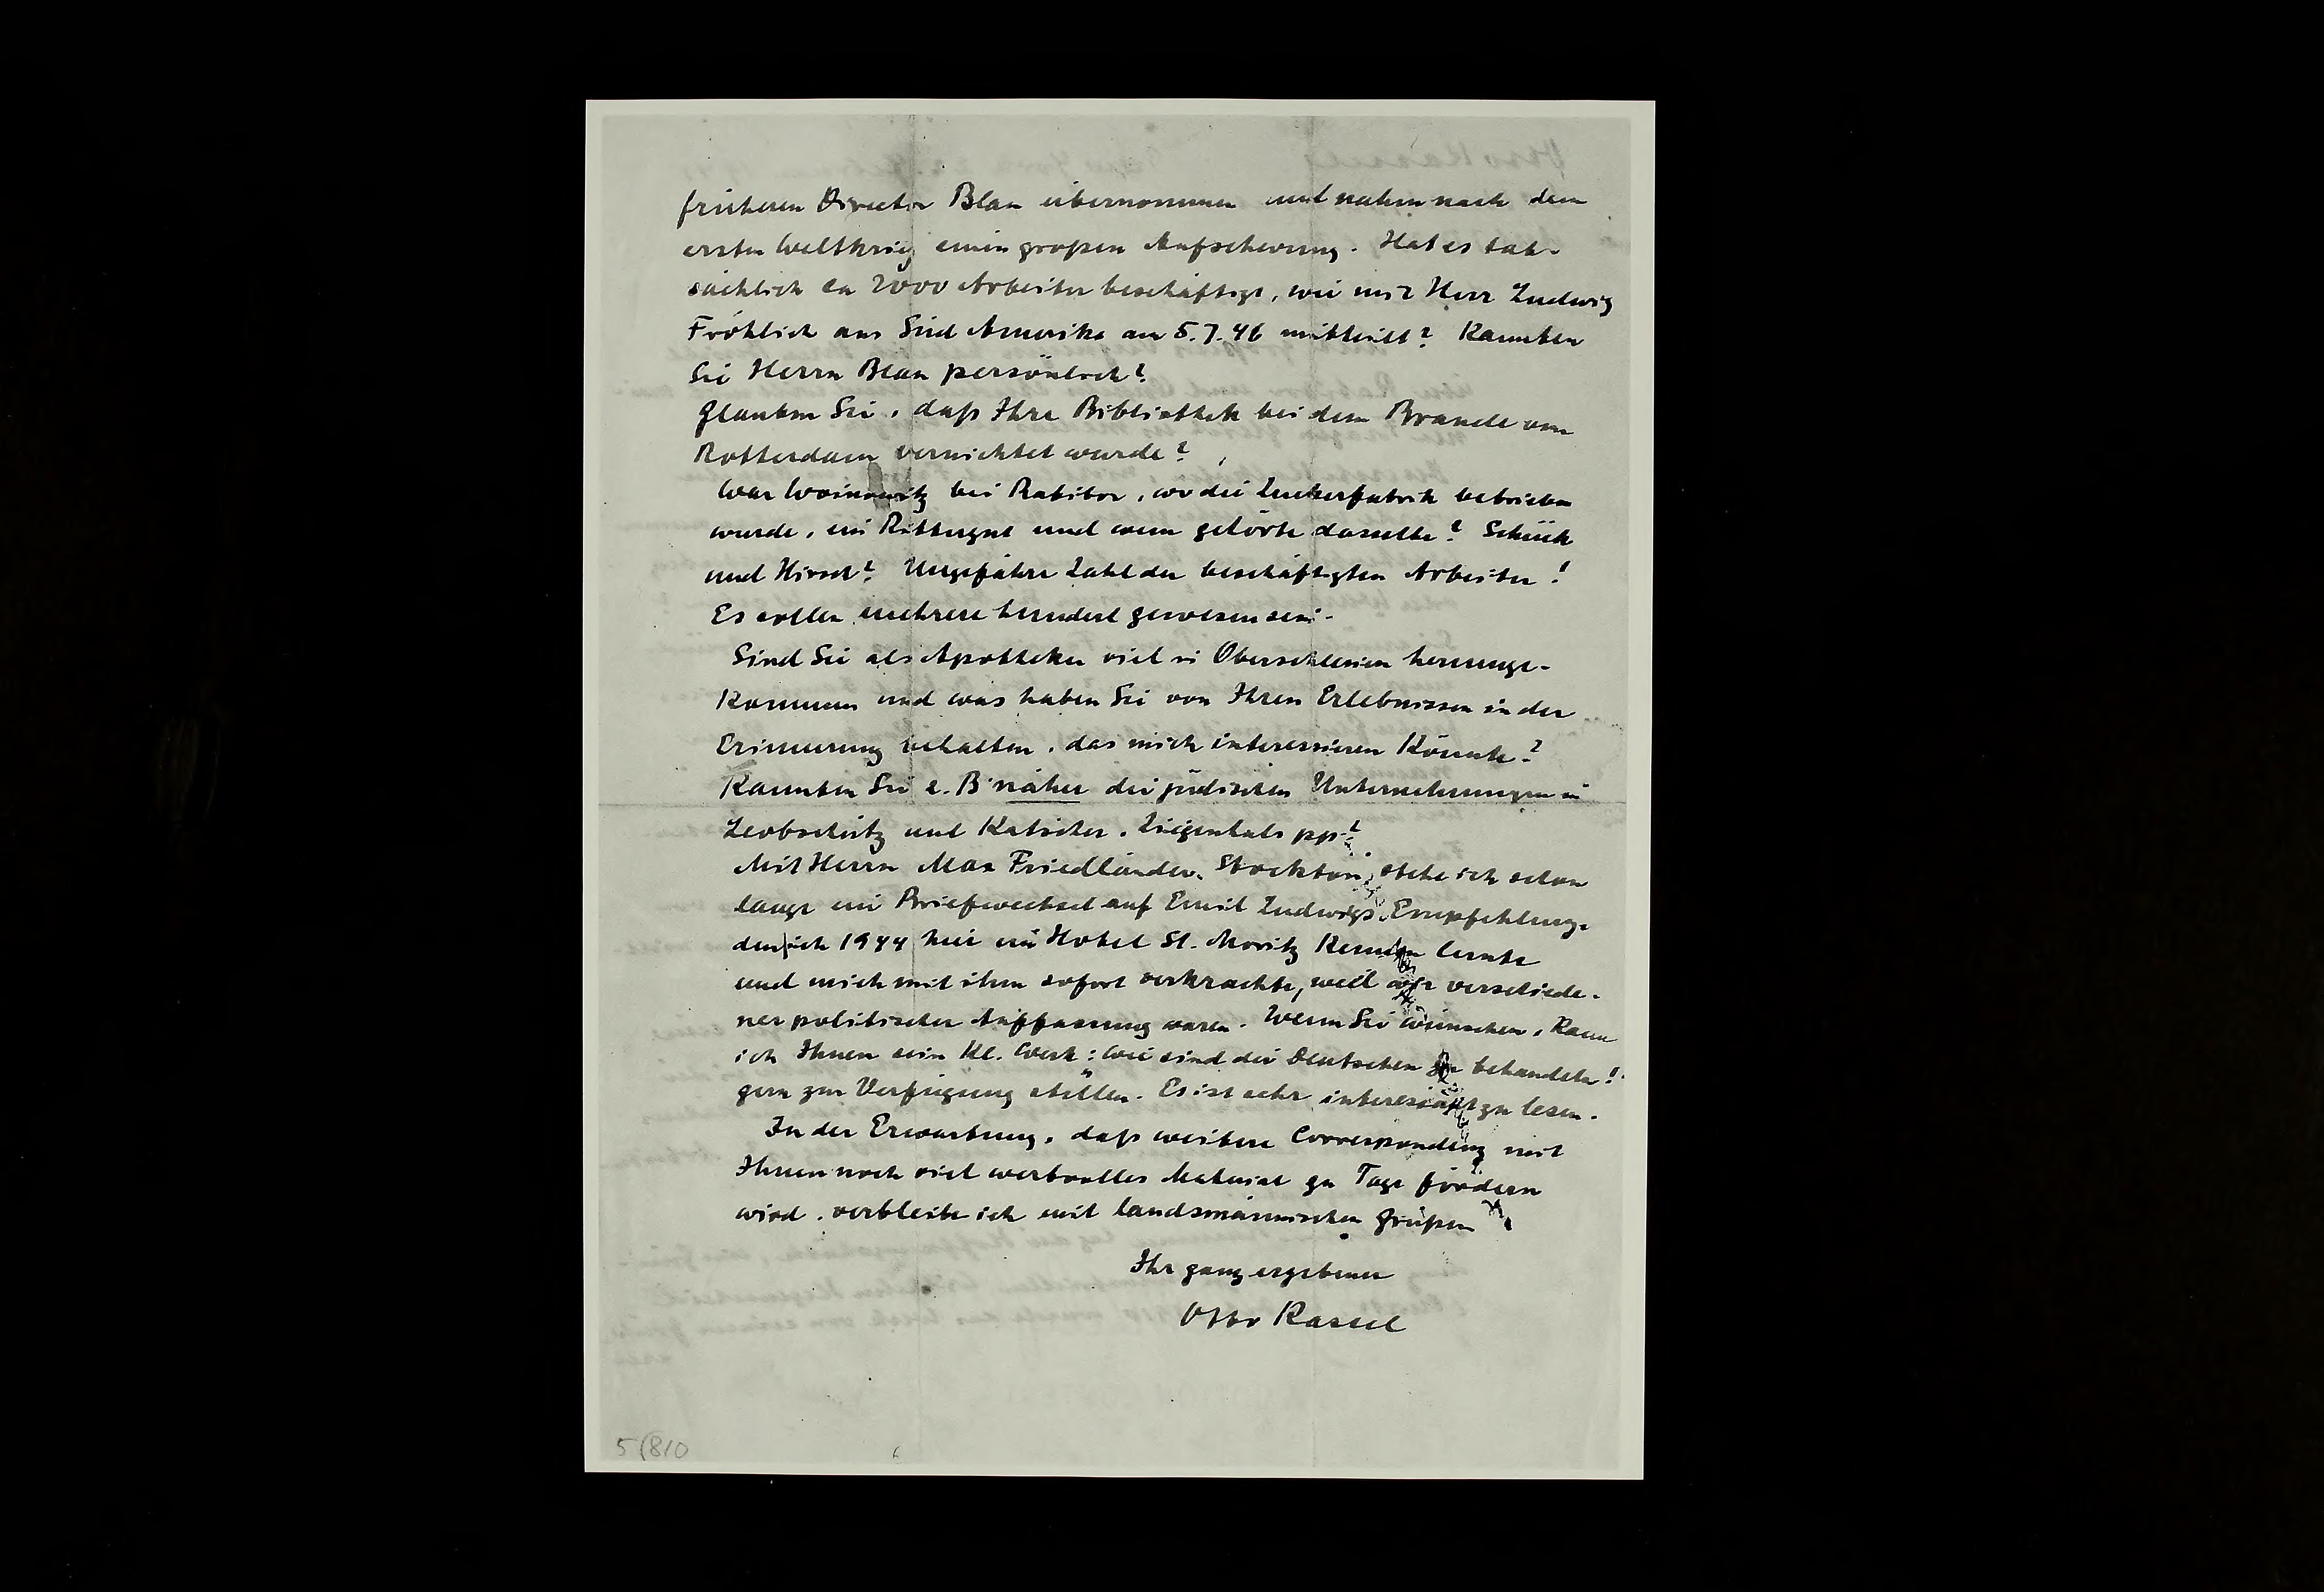 früheren Director Blau übernommen und nahm nach dem
ersten Weltkrieg einen großen Aufschwung. Hat es tat-
sächlich ca 2000 Arbeiter beschäftigt, wie mir Herr Ludwig
Fröhlich aus Süd Amerika am 5.7.46 mitteilt? Kannten
Sie Herrn Blau persönlich?
Glauben Sie, daß Ihre Bibliothek bei dem Brande von
Rotterdam vernichtet wurde?
War Woinowitz bei Ratibor, wo die Zuckerfabrik betrieben
wurde, ein Rittergut und wem gehörte dasselbe? Schück
und Hirsch? Ungefähre Zahl der beschäftigten Arbeiter!
Es sollen mehrere hundert gewesen sein.
Sind Sie als Apotheker viel in Oberschlesien herumge-
kommen und was haben Sie von Ihren Erlebnissen in der
Erinnerung behalten, das mich interessieren könnte?
Kannten Sie z. B näher die jüdischen Unternehmungen in
Leobschütz und Katscher, Ziegenhals pp.?
Mit Herrn Max Friedländer, Stockton, stehe ich schon
lange im Briefwechsel auf Emil Ludwigs Empfehlung,
den ich 1944 hier im Hotel St. Moritz kennen lernte
und mich mit ihm sofort verkrachte, weil wir verschiede-
ner politischer Auffassung waren. Wenn Sie wünschen, kann
ich Ihnen sein kl. Werk: Wie sind die Deutschen zu behandeln!
gern zur Verfügung stellen. Es ist sehr interessant zu lesen.
In der Erwartung, daß weitere Correspondenz mit
Ihnen noch viel wertvolles Material zu Tage fördern
wird, verbleibe ich mit landsmännischen Grüßen
Ihr ganz ergebener
Otto Kassel
5(810